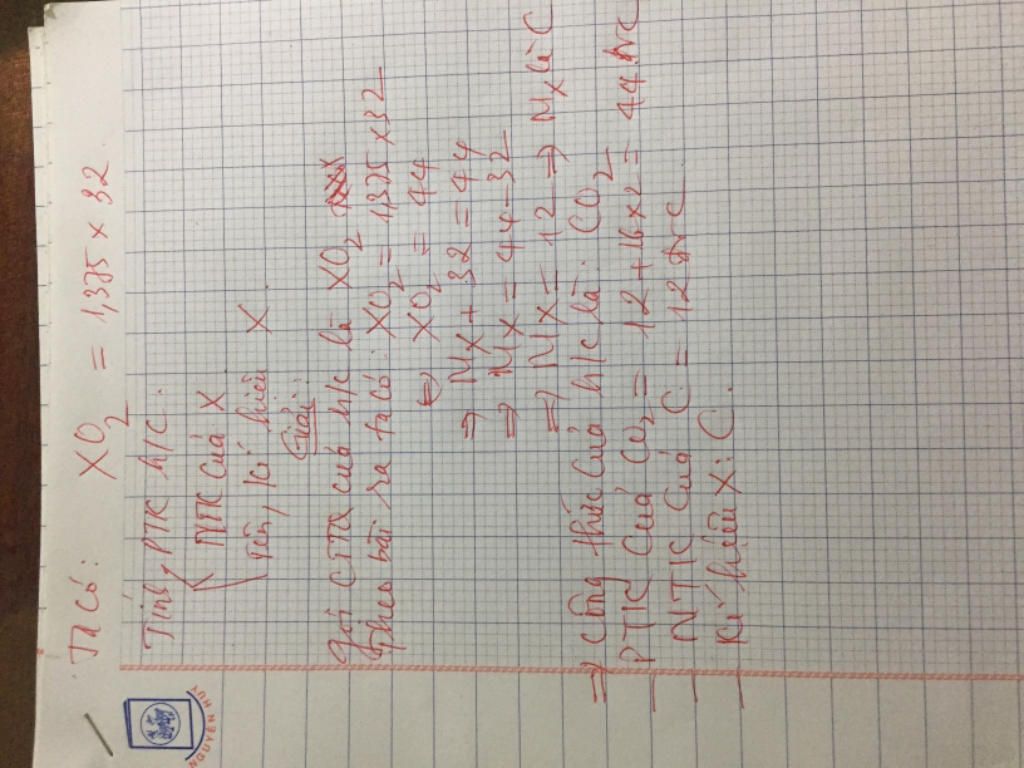 Ta có: XO2 = 1,375 x 32
Tính PTK h/c.
NTK của X
Tên, kí hiệu X.
Giải:
Gọi CTTQ của h/c là XO2
Theo bài ra ta có: XO2 = 1,375 x 32
⇔ XO2 = 44
⇒ MX + 32 = 44
⇒ MX = 44 - 32
⇒ MX = 12 ⇒ MX là C
⇒ Công thức của h/c là: CO2
- PTK của CO2 = 12 + 16 x 2 = 44 đvC
- NTK của C = 12 đvC
- Kí hiệu X: C.
NGUYÊN HUY